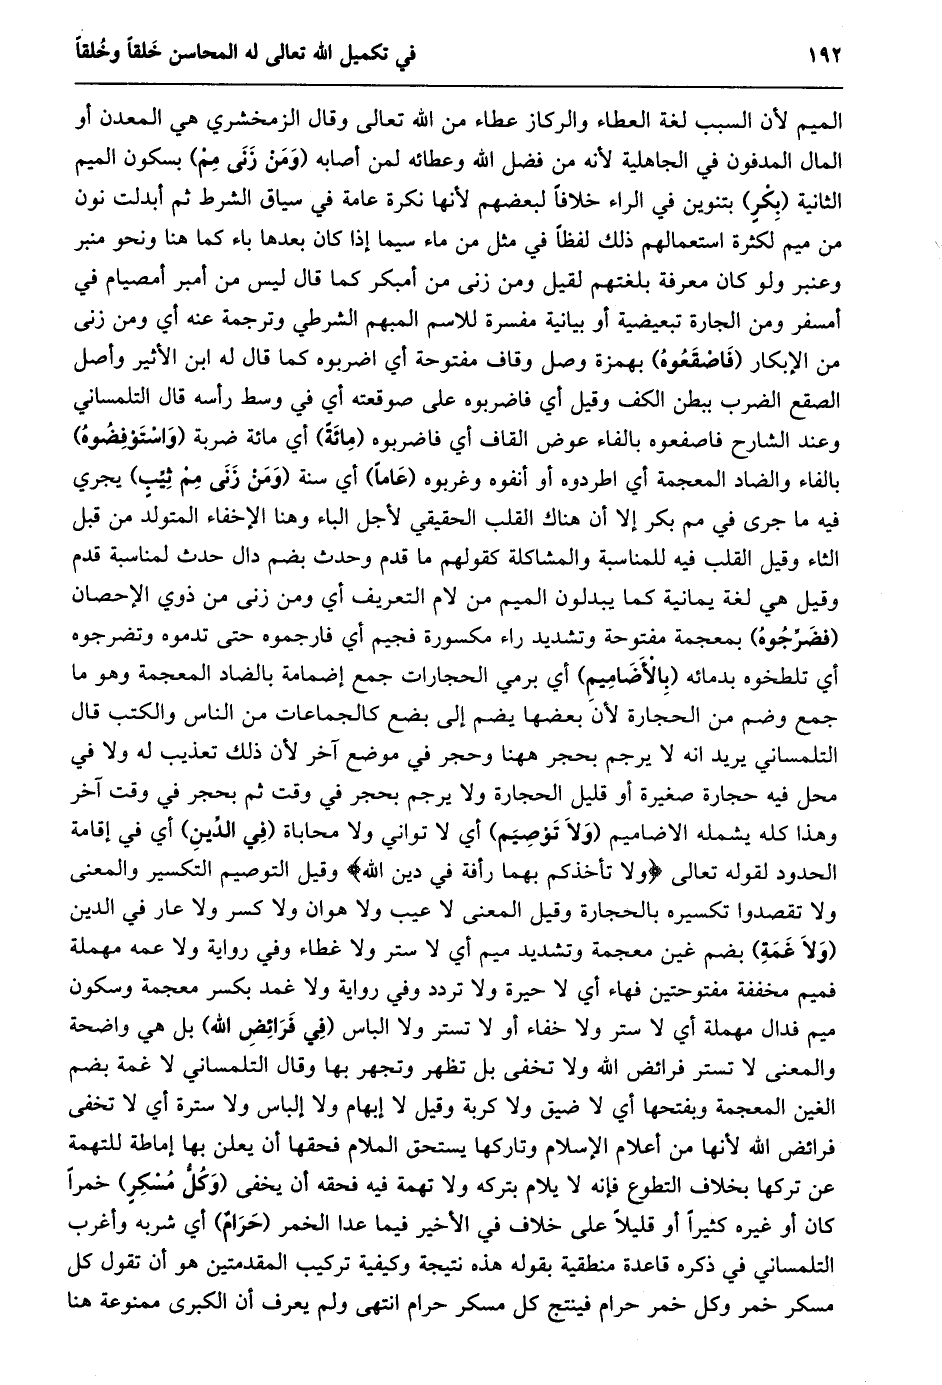 ١٩٢ في تكميل الله تعالى له المحاسن خَلقاً وخُلقاً
الميم لأن السبب لغة العطاء والركاز عطاء من الله تعالى وقال الزمخشري هي المعدن أو
المال المدفون في الجاهلية لأنه من فضل الله وعطائه لمن أصابه (وَمَنْ زَنَى مِمْ) بسكون الميم
الثانية (بِكْرٍ) بتنوين في الراء خلافاً لبعضهم لأنها نكرة عامة في سياق الشرط ثم أبدلت نون
من ميم لكثرة استعمالهم ذلك لفظاً في مثل من ماء سيما إذا كان بعدها باء كما هنا ونحو منبر
وعنبر ولو كان معرفة بلغتهم لقيل ومن زنى من أمبكر كما قال ليس من أمبر أمصيام في
أمسفر ومن الجارة تبعيضية أو بيانية مفسرة للاسم المبهم الشرطي وترجمة عنه أي ومن زنى
من الإبكار (فَاصْقَعُوهُ) بهمزة وصل وقاف مفتوحة أي اضربوه كما قال له ابن الأثير وأصل
الصقع الضرب ببطن الكف وقيل أي فاضربوه على صوقعته أي في وسط رأسه قال التلمساني
وعند الشارح فاصفعوه بالفاء عوض القاف أي فاضربوه (مِائَةً) أي مائة ضربة (وَاسْتَوْفِضُوهُ)
بالفاء والضاد المعجمة أي اطردوه أو أنفوه وغربوه (عَاماً) أي سنة (وَمَنْ زَنَى مِمْ ثَيِّبٍ) يجري
فيه ما جرى في مم بكر إلا أن هناك القلب الحقيقي لأجل الباء وهنا الإخفاء المتولد من قبل
الثاء وقيل القلب فيه للمناسبة والمشاكلة كقولهم ما قدم وحدث بضم دال حدث لمناسبة قدم
وقيل هي لغة يمانية كما يبدلون الميم من لام التعريف أي ومن زنى من ذوي الإحصان
(فَضَرِّجُوهُ) بمعجمة مفتوحة وتشديد راء مكسورة فجيم أي فارجموه حتى تدموه وتضرجوه
أي تلطخوه بدمائه (بِالْأَضَامِيمِ) أي برمي الحجارات جمع إضمامة بالضاد المعجمة وهو ما
جمع وضم من الحجارة لأن بعضها يضم إلى بضع كالجماعات من الناس والكتب قال
التلمساني يريد انه لا يرجم بحجر ههنا وحجر في موضع آخر لأن ذلك تعذيب له ولا في
محل فيه حجارة صغيرة أو قليل الحجارة ولا يرجم بحجر في وقت ثم بحجر في وقت آخر
وهذا كله يشمله الاضاميم (وَلاَ تَوْصِيَم) أي لا تواني ولا محاباة (فِي الدِّينِ) أي في إقامة
الحدود لقوله تعالى ﴿ولا تأخذكم بهما رأفة في دين الله﴾ وقيل التوصيم التكسير والمعنى
ولا تقصدوا تكسيره بالحجارة وقيل المعنى لا عيب ولا هوان ولا كسر ولا عار في الدين
(وَلاَ غَمَةِ) بضم غين معجمة وتشديد ميم أي لا ستر ولا غطاء وفي رواية ولا عمه مهملة
فميم مخففة مفتوحتين فهاء أي لا حيرة ولا تردد وفي رواية ولا غمد بكسر معجمة وسكون
ميم فدال مهملة أي لا ستر ولا خفاء أو لا تستر ولا الباس (فِي فَرَائِضِ الله) بل هي واضحة
والمعنى لا تستر فرائض الله ولا تخفى بل تظهر وتجهر بها وقال التلمساني لا غمة بضم
الغين المعجمة وبفتحها أي لا ضيق ولا كربة وقيل لا إبهام ولا إلباس ولا سترة أي لا تخفى
فرائض الله لأنها من أعلام الإسلام وتاركها يستحق الملام فحقها أن يعلن بها إماطة للتهمة
عن تركها بخلاف التطوع فإنه لا يلام بتركه ولا تهمة فيه فحقه أن يخفى (وَكُلُّ مُسْكِرٍ) خمراً
كان أو غيره كثيراً أو قليلاً على خلاف في الأخير فيما عدا الخمر (حَرَامٌ) أي شربه وأغرب
التلمساني في ذكره قاعدة منطقية بقوله هذه نتيجة وكيفية تركيب المقدمتين هو أن تقول كل
مسكر خمر وكل خمر حرام فينتج كل مسكر حرام انتهى ولم يعرف أن الكبرى ممنوعة هنا